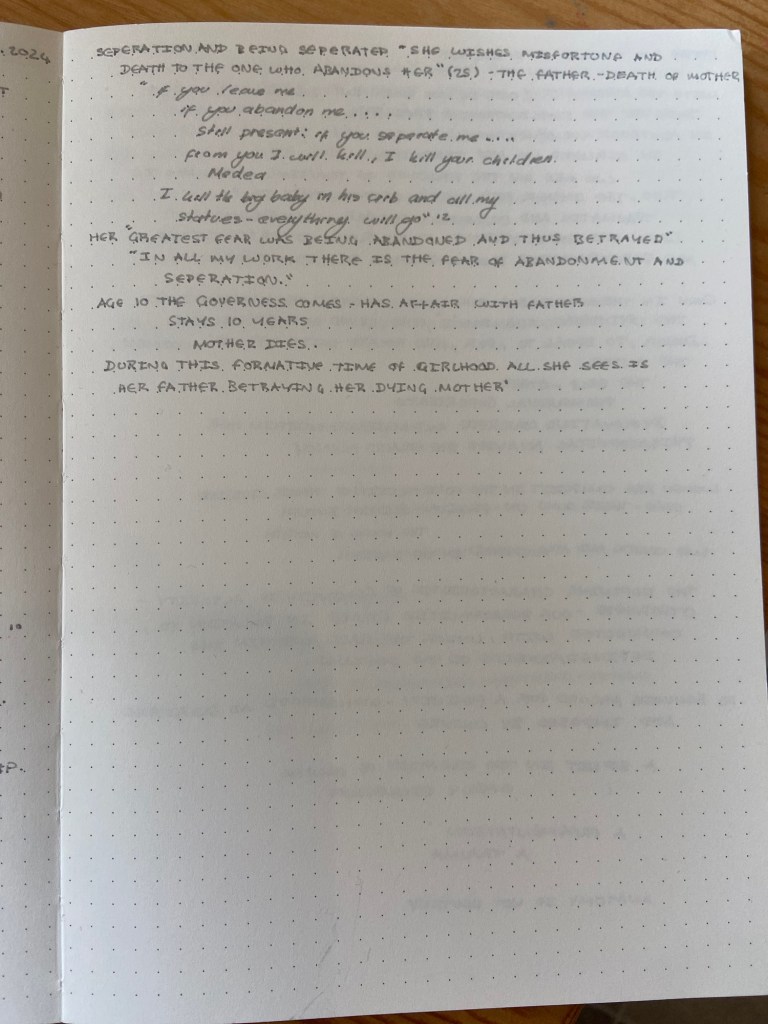 . 2024
SEPERATION AND BEING SEPERATED "SHE WISHES MISFORTUNE AND
DEATH TO THE ONE WHO ABANDONS HER" (25) - THE FATHER - DEATH OF MOTHER
"if you leave me
if you abandon me....
still present: if you separate me....
from you I will kill, I kill your children.
Medea
I kill the big baby in his crib and all my
statues - everything will go". 12
HER "GREATEST FEAR WAS BEING ABANDONED AND THUS BETRAYED"
"IN ALL MY WORK THERE IS THE FEAR OF ABANDONMENT AND
SEPERATION."
AGE 10 THE GOVERNESS COMES - HAS AFFAIR WITH FATHER
STAYS 10 YEARS
MOTHER DIES..
DURING THIS FORMATIVE TIME OF GIRLHOOD ALL SHE SEES IS
HER FATHER BETRAYING HER DYING MOTHER"